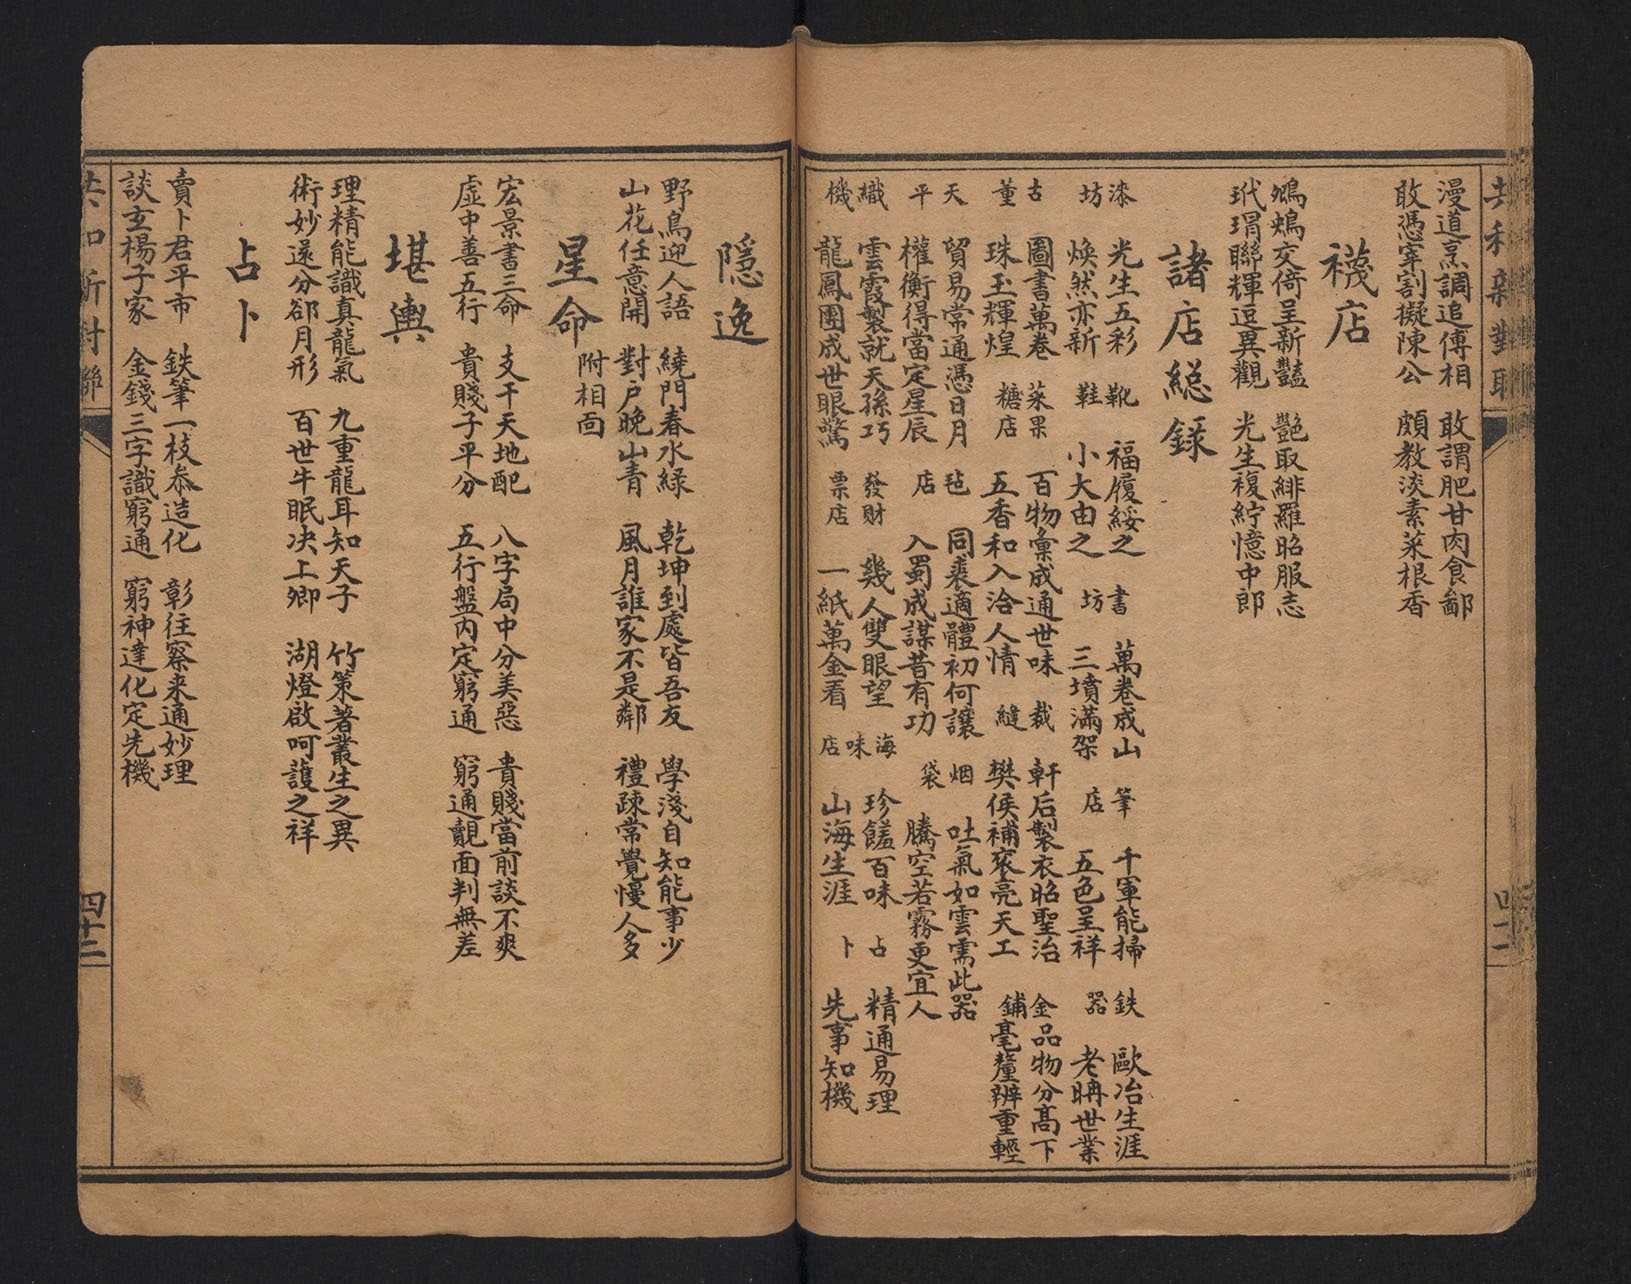 共和新對聯
漫道烹調追傅相 敢謂肥甘肉食鄙
敢憑宰割擬陳公 頗教淡素菜根香
襪店
鳩交倚呈新豔 艷取緋羅昭服志
玳瑁聯輝逗異觀 光生複紵憶中郎
諸店総錄
漆 光生五彩 靴 福履綏之 書 萬卷成山 筆 千軍能掃 鉄 歐冶生涯
坊 煥然亦新 鞋 小大由之 坊 三墳滿架 店 五色呈祥 器 老聃世業
古 圖書萬卷 菜果 百物彙成通世味 裁 軒后製衣昭聖治 金 品物分高下
董 珠玉輝煌 糖店 五香和入洽人情 縫 樊侯補衮亮天工 鋪 毫釐辨重輕
天 貿易常通憑日月 毡 同裘適體初何讓 烟 吐氣如雲需此器
平 權衡得當定星辰 店 入蜀成謀昔有功 袋 騰空若霧更宜人
織 雲霞製就天孫巧 發財 幾人雙眼望 海 珍饈百味 占 精通易理
機 龍鳳團成世眼驚 票店 一紙萬金看 味店 山海生涯 卜 先事知機
隱逸
野鳥迎人語 繞門春水綠 乾坤到處皆吾友 學淺自知能事少
山花任意開 對户晚山青 風月誰家不是鄰 禮疎常覺慢人多
星命 附相面
宏景書三命 支干天地配 八字局中分美惡 貴賤當前談不爽
虛中善五行 貴賤子平分 五行盤內定窮通 窮通覿面判無差
堪輿
理精能識真龍氣 九重龍耳知天子 竹策著叢生之異
術妙遥分郤月形 百世牛眠决上卿 湖燈啟呵護之祥
占卜
賣卜君平市 鉄筆一枝叅造化 彰往察来通妙理
談玄楊子家 金錢三字識窮通 窮神達化定先機
共和新對聯
四十二